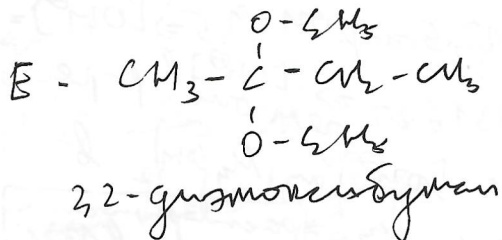 O - C₂H₅
E - CH₃ - C - CH₂ - CH₃
O - C₂H₅
2,2-диэтоксибутан